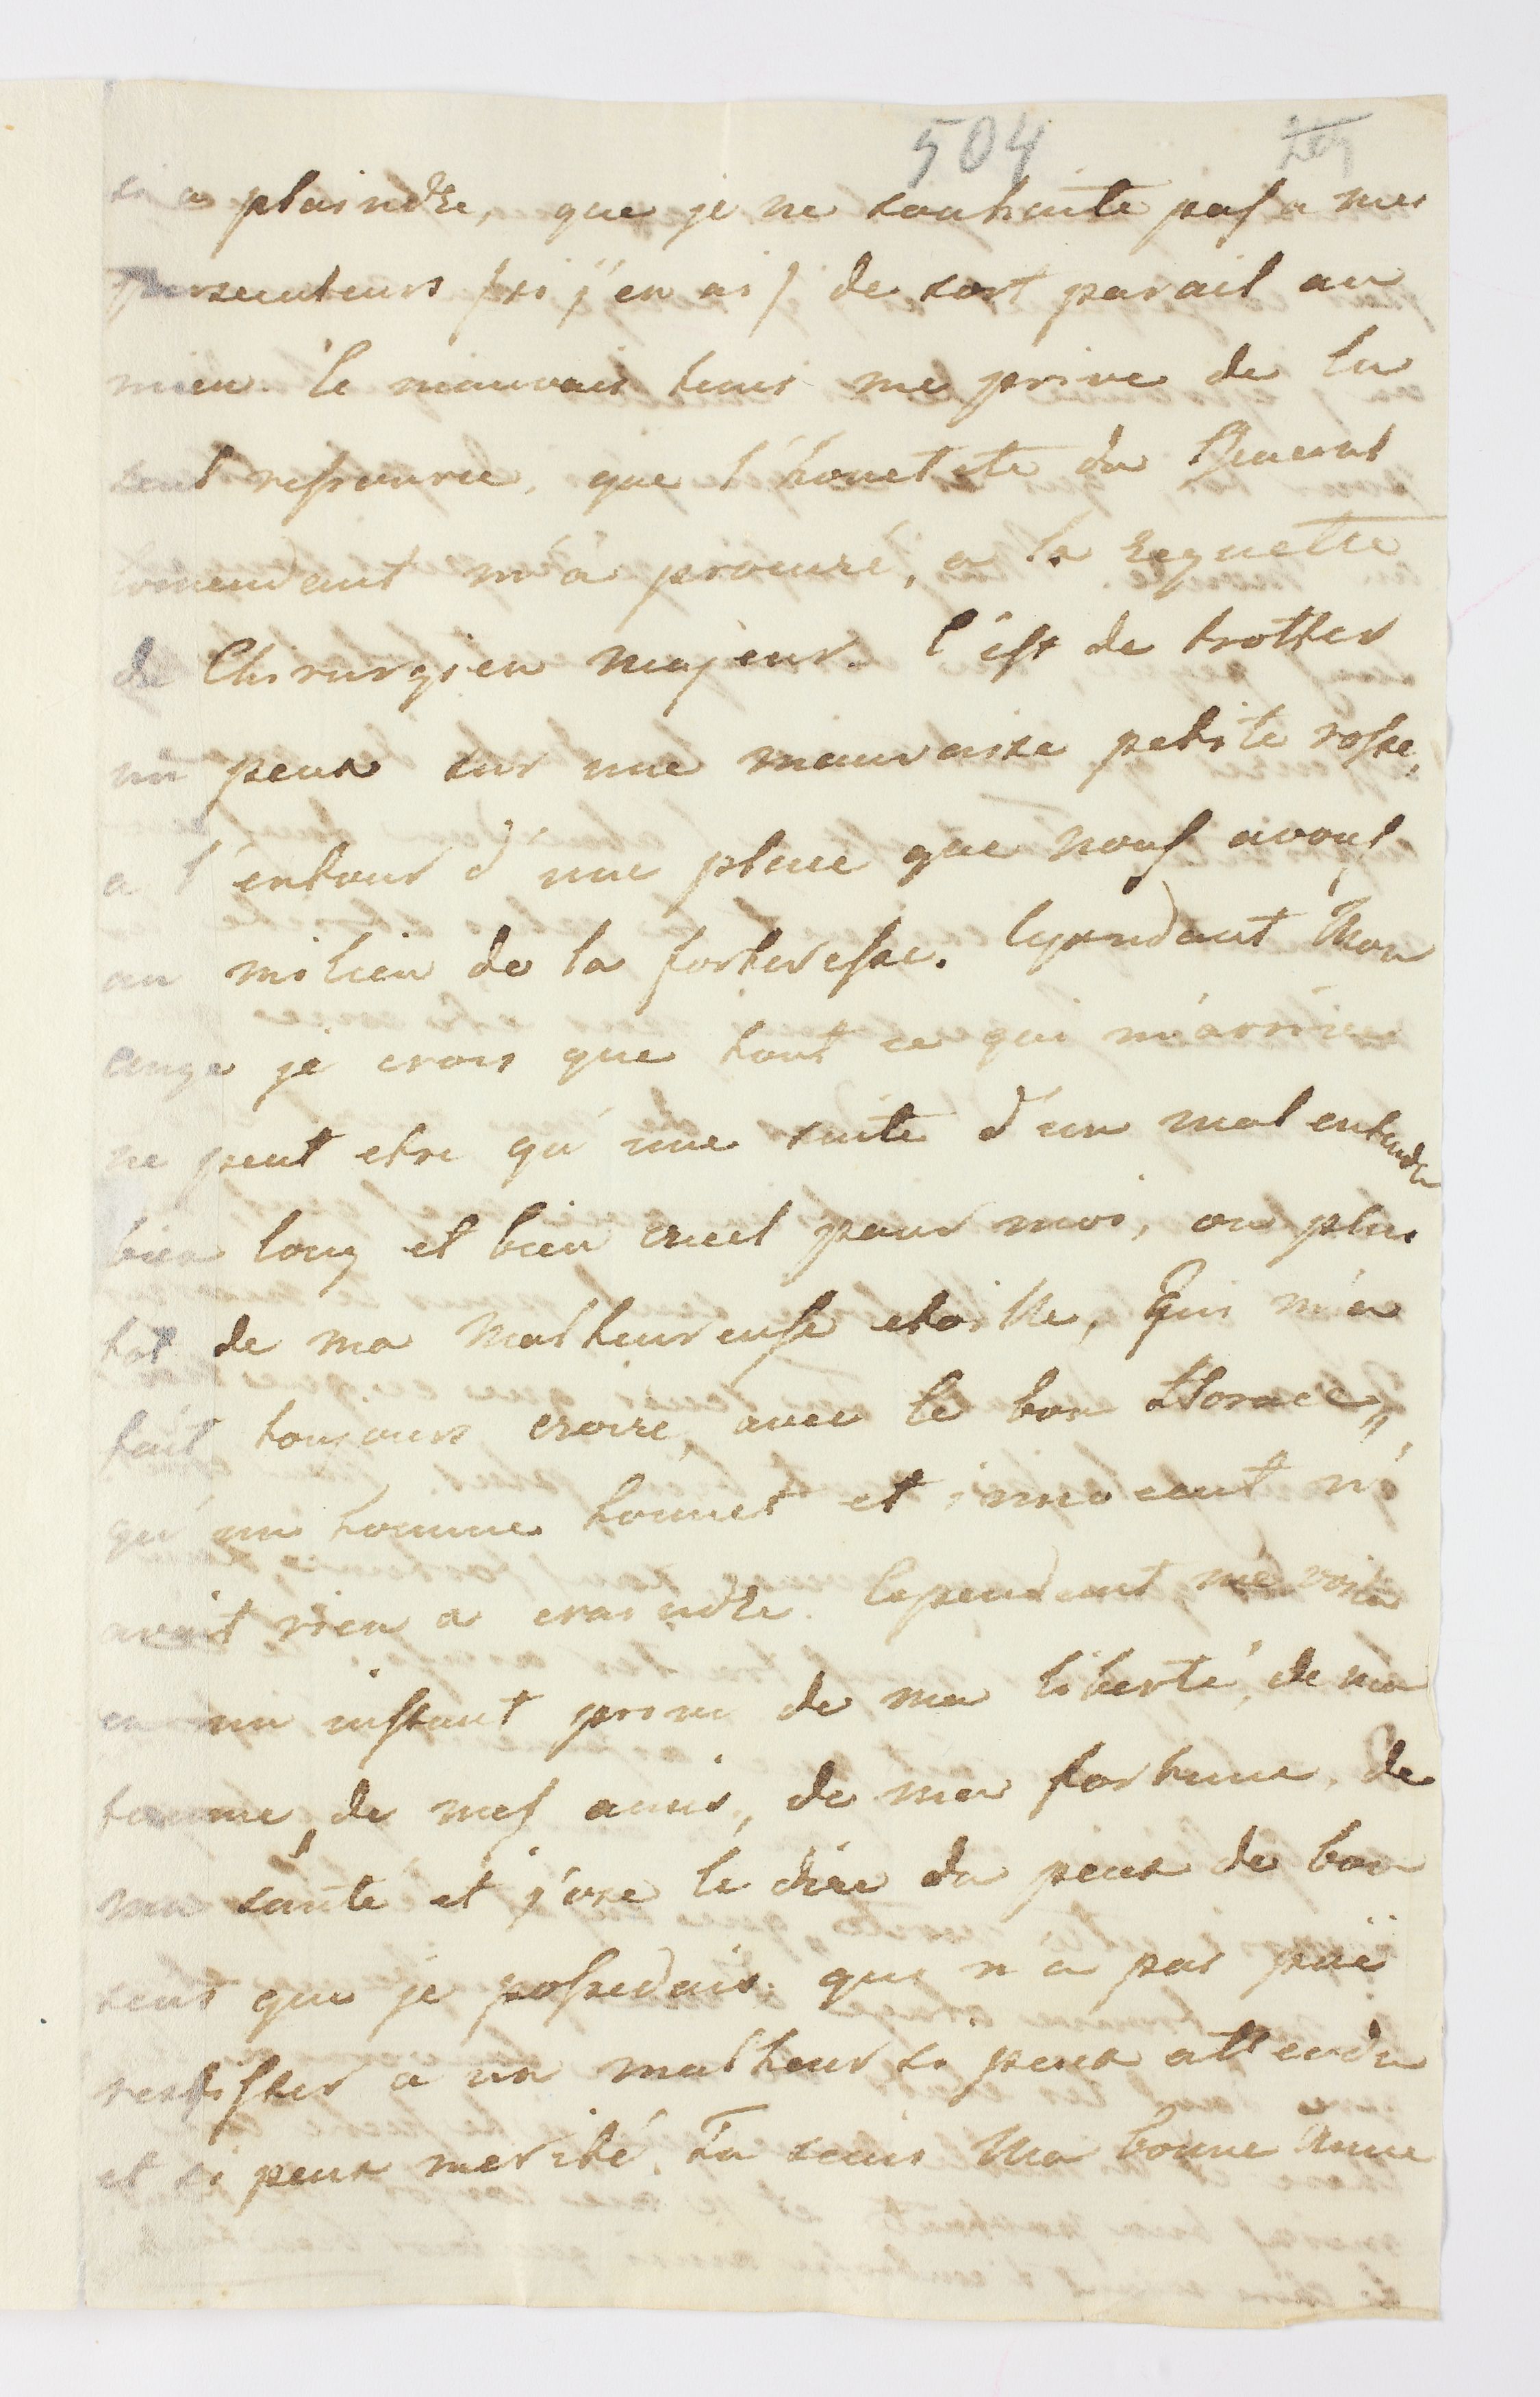 504
si a plaindre, que je ne souhaite pas a mes
persecuteurs /si j'en ai/ de sort parail au
mien. Le mauvais tems me prive de la
seul ressource, que l'honetete du General
Comendant m'a procuré, a la requette
de Chirurgien majeur. C'est de trotter
un peux sur une mauvaise petite rosse,
a l'entour d'une place que nous avons
au milieu de la forteresse. Cependant Mon
ange je crois que tout ce qui m'arrive
ne peut etre qu'une suite d'un mal entendu
bien long et bien cruel pour moi, ou plu
tot de ma malheureuse etoille, Qui m'a
fait toujours croire, avec le bon Horace,,
qu'un homme honnet et innocent n'
avait rien a craindre. Cependant me voila
en un instant privé de ma liberté, de ma
femme, de mes amis, de ma fortune. de
ma santé et j'ose le dire du peux de bon
sens que je possedais. qui n'a pas puë
ressister a un malheur si peux attendu
et si peux merité. Tu sais Ma bonne Amie